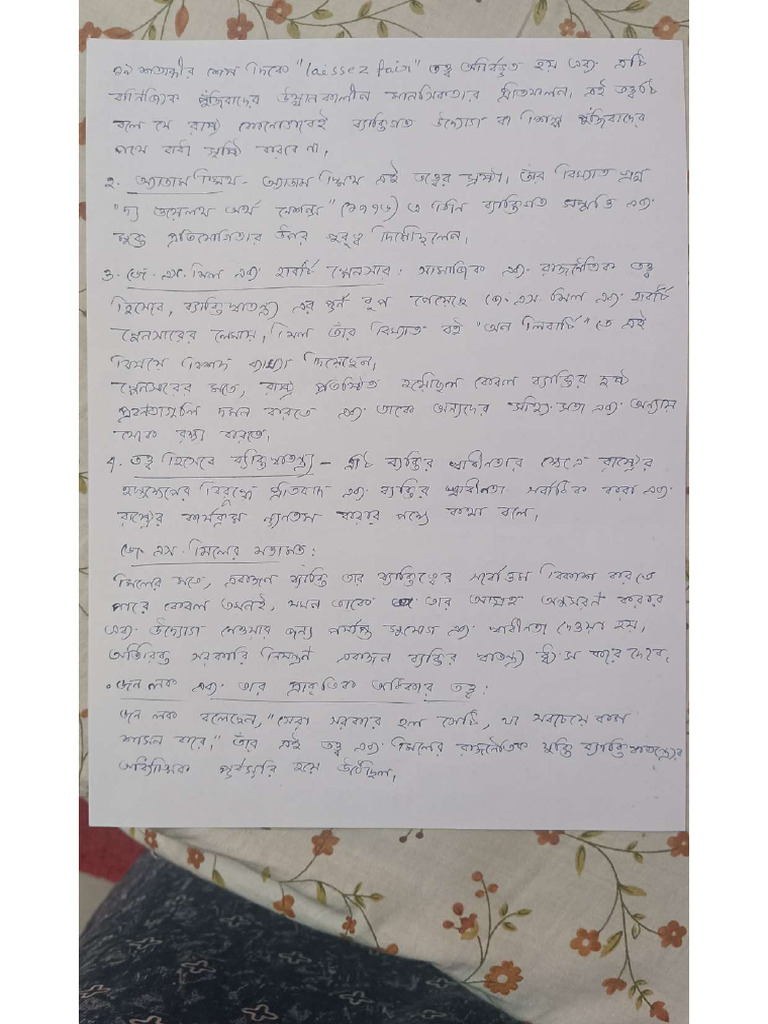 ১৮ শতাব্দীর শেষ দিকে "laissez fair" তত্ত্ব আবির্ভূত হয় এবং এটি
বাণিজ্যিক পুঁজিবাদের উত্থানকালীন মানসিকতার প্রতিফলন। এই তত্ত্বটি
বলে যে রাষ্ট্র কোনোভাবেই ব্যক্তিগত উদ্যোগ বা শিল্প পুঁজিবাদের
পথে বাধা সৃষ্টি করবে না।
২. অ্যাডাম স্মিথ - অ্যাডাম স্মিথ এই তত্ত্বের স্রষ্টা। তাঁর বিখ্যাত গ্রন্থ
"দ্য ওয়েলথ অফ নেশনস" (১৭৭৬) তে তিনি ব্যক্তিগত সম্পত্তি এবং
মুক্ত প্রতিযোগিতার উপর গুরুত্ব দিয়েছিলেন।
৩. জে. এস. মিল এবং হার্বার্ট স্পেনসার: সামাজিক এবং রাজনৈতিক তত্ত্ব
হিসেবে, ব্যক্তিস্বাতন্ত্র্য এর পূর্ণ রূপ পেয়েছে জে. এস. মিল এবং হার্বার্ট
স্পেনসারের লেখায়। মিল তাঁর বিখ্যাত বই "অন লিবার্টি" তে এই
বিষয়ে বিশদ ব্যাখ্যা দিয়েছেন।
স্পেনসারের মতে, রাষ্ট্র প্রতিষ্ঠিত হয়েছিল কেবল ব্যক্তির দুষ্ট
প্রবণতাগুলি দমন করতে এবং তাকে অন্যদের সহিংসতা এবং অন্যায়
থেকে রক্ষা করতে।
৪. তত্ত্ব হিসেবে ব্যক্তিস্বাতন্ত্র্য - এটি ব্যক্তির স্বাধীনতার ক্ষেত্রে রাষ্ট্রের
হস্তক্ষেপের বিরুদ্ধে প্রতিবাদ এবং ব্যক্তির স্বাধীনতা সর্বাধিক করা এবং
রাষ্ট্রের কার্যক্রম ন্যূনতম করার পক্ষে কথা বলে।
জে. এস. মিলের মতামত:
মিলের মতে, একজন ব্যক্তি তার ব্যক্তিত্বের সর্বোত্তম বিকাশ করতে
পারে কেবল তখনই, যখন তাকে তার আগ্রহ অনুসরণ করার
এবং উদ্যোগ নেওয়ার জন্য পর্যাপ্ত সুযোগ এবং স্বাধীনতা দেওয়া হয়।
অতিরিক্ত সরকারি নিয়ন্ত্রণ একজন ব্যক্তির স্বাতন্ত্র্য ধ্বংস করে দেবে।
• জন লক এবং তার প্রাকৃতিক অধিকার তত্ত্ব:
জন লক বলেছেন, "সেরা সরকার হল সেটি, যা সবচেয়ে কম
শাসন করে।" তাঁর এই তত্ত্ব এবং মিলের রাজনৈতিক মুক্তি ব্যক্তিস্বাতন্ত্র্যের
পূর্বসূরি হয়ে উঠেছিল।